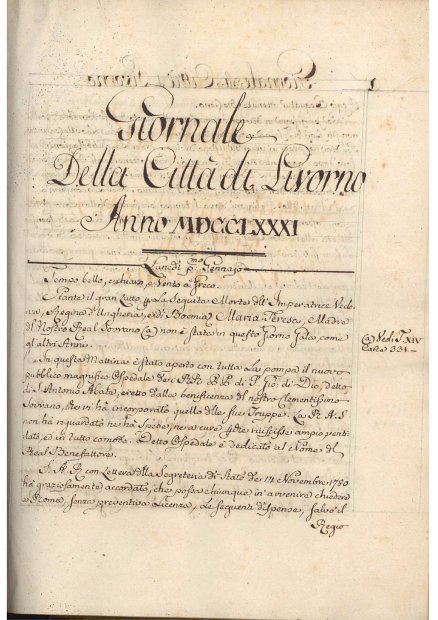 1
Giornale
Della Città di Livorno
Anno MDCCLXXXI
Lunedì pmo Gennajo
Tempo bello, e chiaro, e Vento a Greco.
Stante il gran Lutto p la seguita Morte dell'Imperatrice Vedo-
va, Regina d'Ungheria, e di Boemia Maria Teresa, Madre
del Nostro Real Sovrano (a) non è stato in questo Giorno Gala, come
gli altri Anni.
(a) Vedi T. XIV
Carte 331.
In questa Mattina è stato aperto con tutta la pompa il nuovo
pubblico magnifico Ospedale dei PP. di S. Gio: di Dio, detto
di S. Antonio Abate, eretto dalla beneficenza del nostro Clementissimo
Sovrano, che vi ha incorporato quello delle sue Truppe. La R. A. S.
non ha riguardato nè a Spese, nè a cure che riuscisse ampio, venti-
lato, ed in tutto comodo. Detto Ospedale è dedicato al Nome del
Real Benefattore.
S. A. R. con Lettera della Segreteria di Stato de 14 Novembre 1780
ha graziosamente accordato, che possa chiunque in avvenire chiedere
a Roma, senza preventiva Licenza, le seguenti dispense, salvo il
Regio